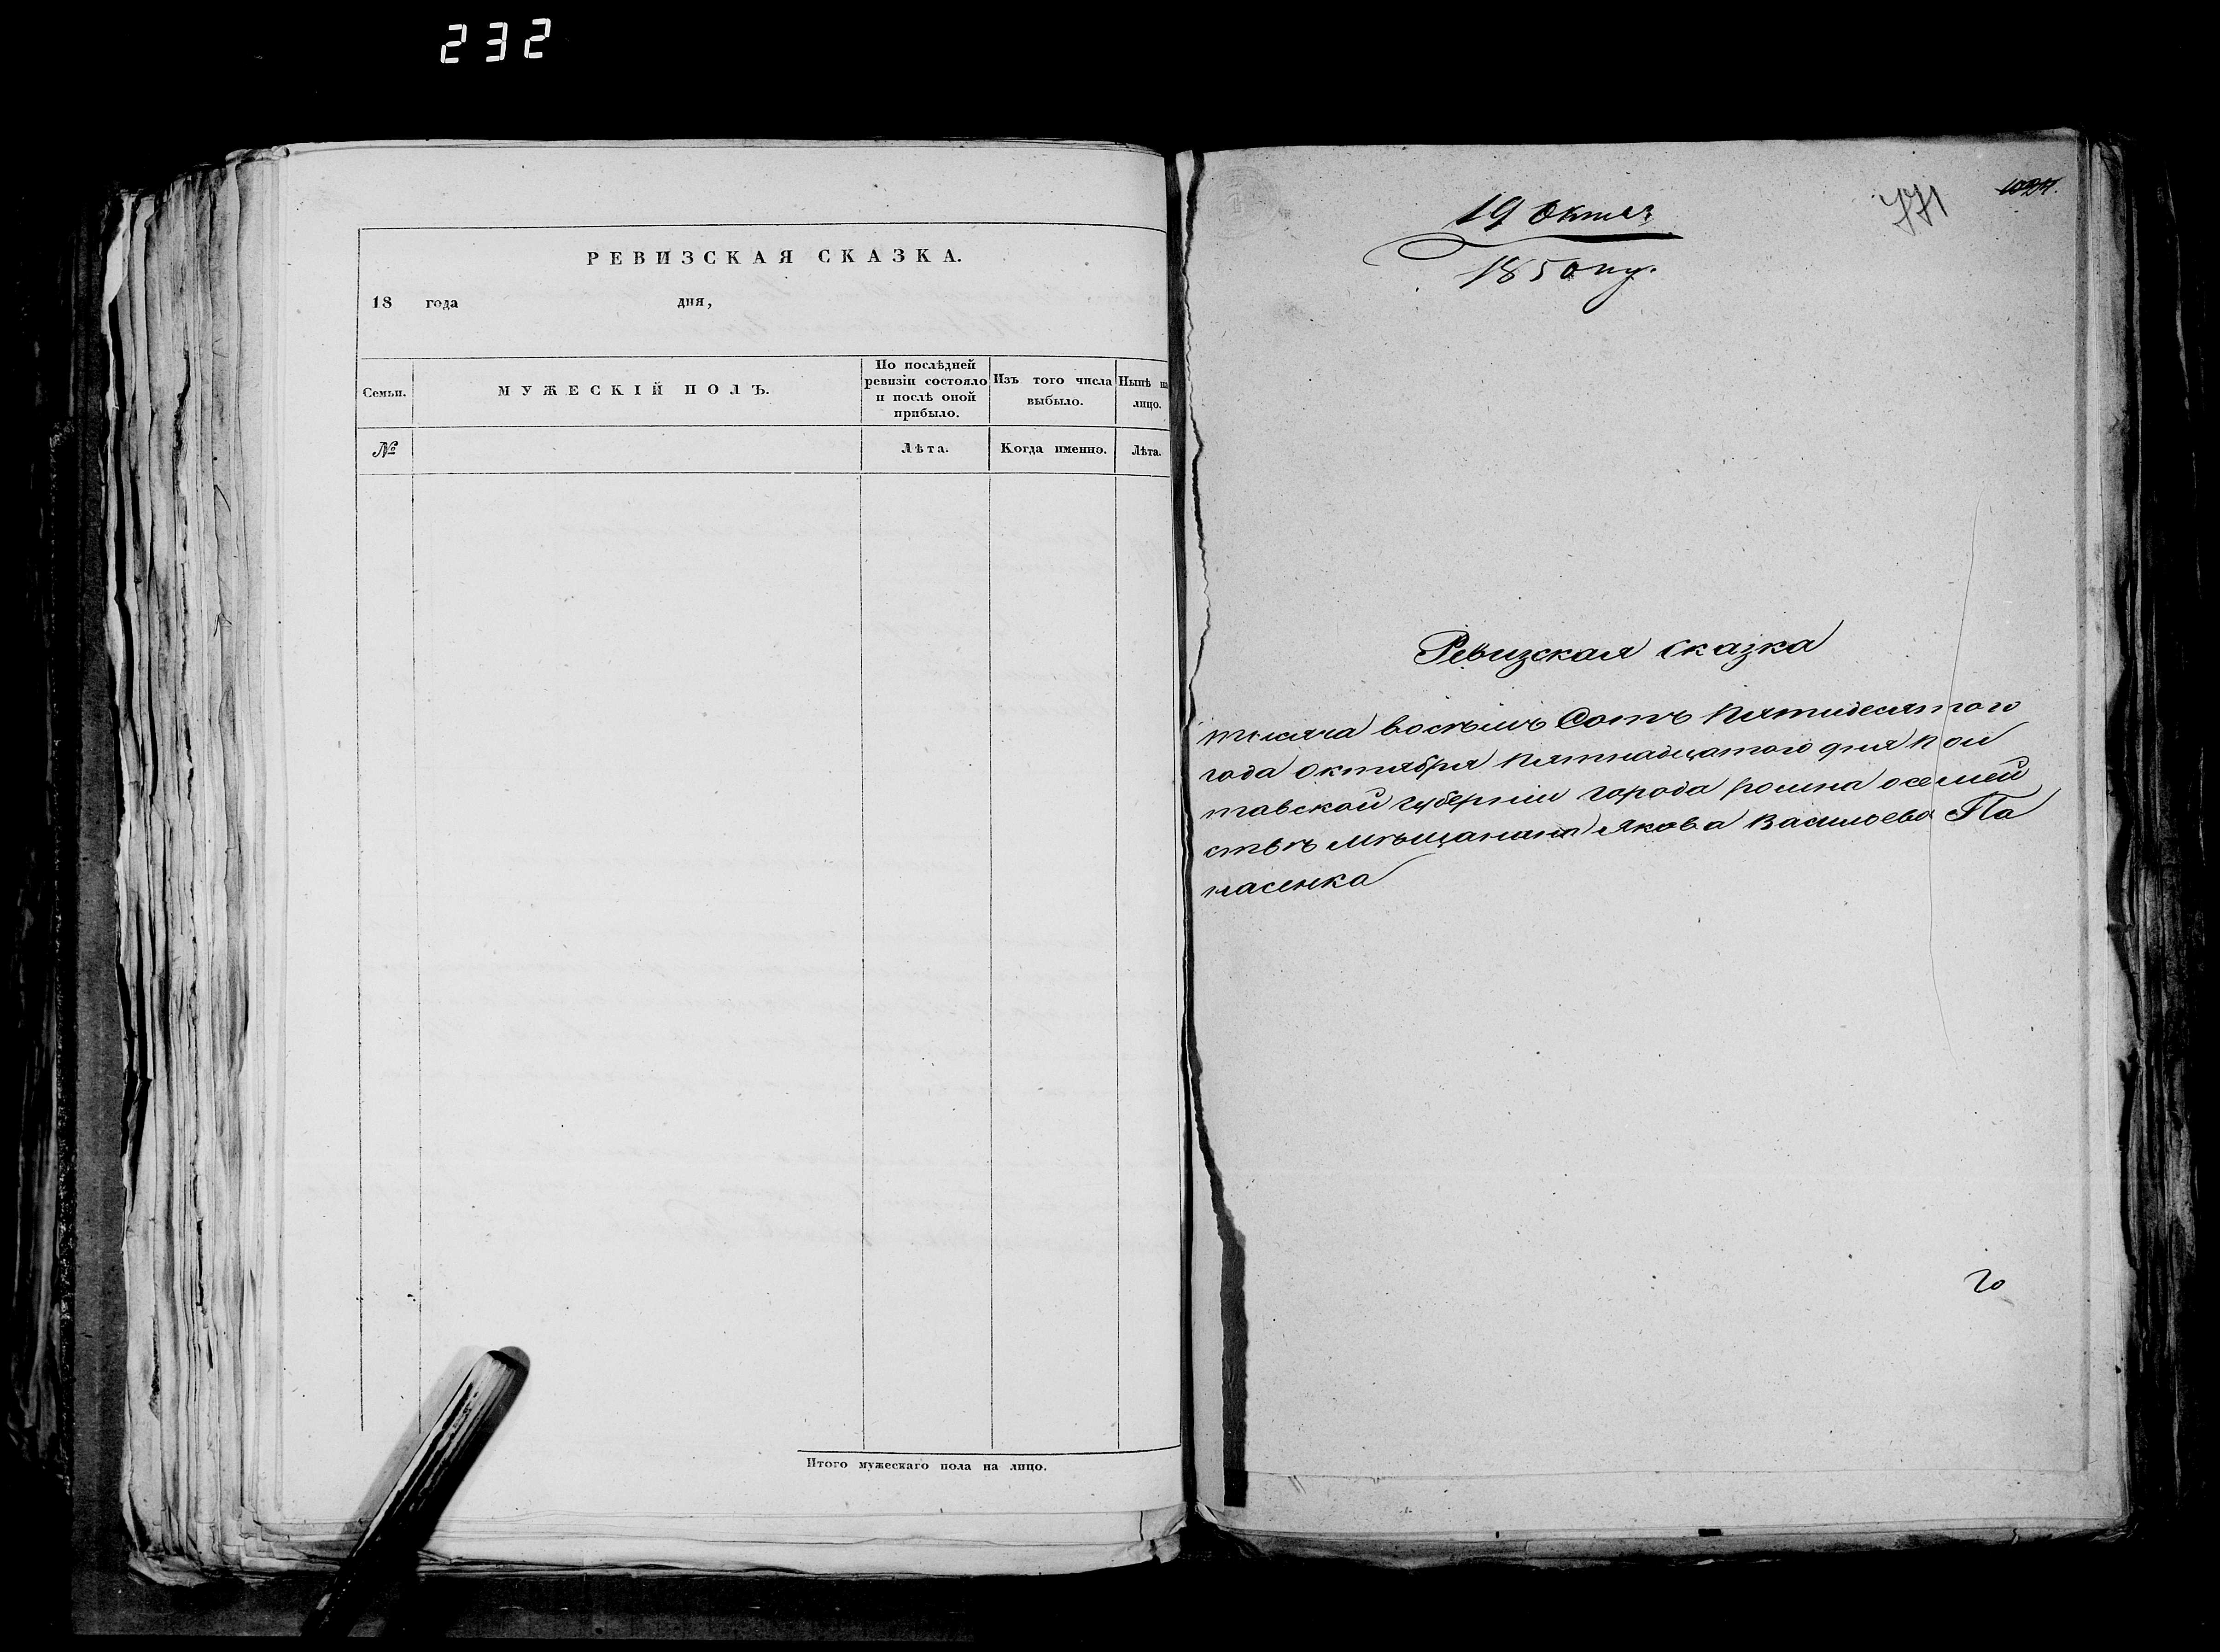 232
РЕВИЗСКАЯ СКАЗКА.
18 года дня,
Семьи.
МУЖЕСКІЙ ПОЛЪ.
По послѣдней ревизіи состояло и послѣ оной прибыло.
Изъ того числа выбыло.
Нынѣ на лицо.
№
Лѣта.
Когда именно.
Лѣта.
Итого мужескаго пола на лицо.
19 Октяб
1850
771
Ревизская сказка
тысяча восѣмъ Сотъ пятидесятого
года октября пятнадцатого дня пол
тавской губерніи города ромна осемей
ствѣ мѣщанина Якова Василоева Па
насенка
20